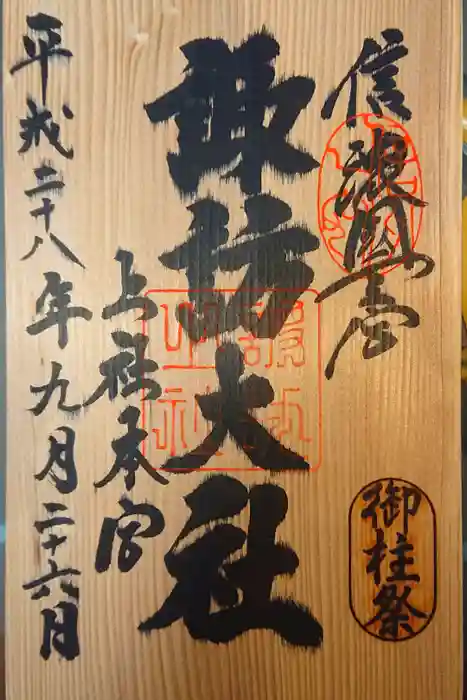 信濃國一宮
御柱祭
諏訪大社
上社本宮
平成二十八年九月二十六日